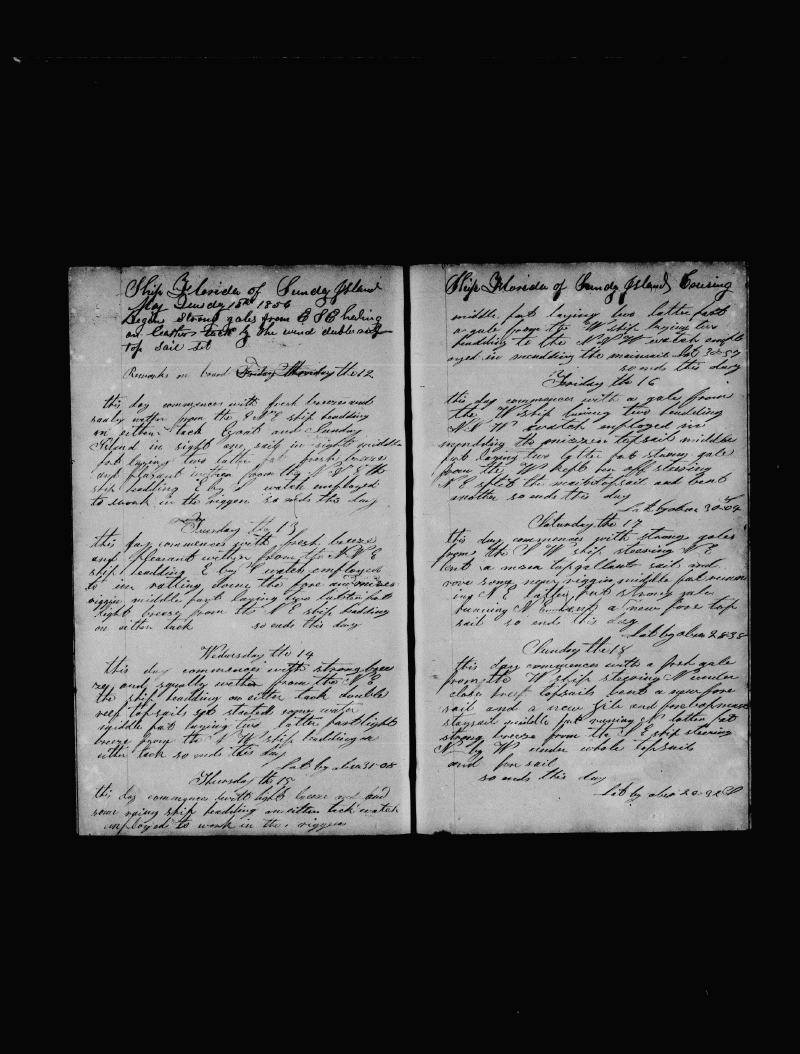 Ship Florida of Sunday Island
May Tuesday 15th 1856
Began strong gales from E S E heading
on Easthern tack by the wind duble reef
top sail set
Remarks on board Friday Monday the 12
this day commences with fresh breezes and
wether from the E N E ship heading
on either tack Grant and Sunday
Island in sight one sail in sight middle
fat laying two latter fat fresh breeze
and plesant wethen from the N N E the
ship heading E by watch employed
to work in the riggen so ends this day
Tuesday the 13
this day commences with fresh breeze
and plesant wether from the N N E
ship heading E by watch employed
in ratling down the fore and mizen
riggin middle part laying two latter fat
light breeze from the N E ship heading
on either tack so ends this day
Wedursday the 14
this day commences with strong bree
zes and squally wether from the N E
the ship heading on either tack double
reef topsails set started some water
middle fat laying two latter part light
breeze from the N W ship heading on
either tack so ends this day
Lat by aber 31-08
Thursday the 15
this day commences with light breeze and
some raing ship heading on either tack watch
employed to work in the riggen
Ship Florida of Sundy Island Cruising
middle fat laying two latter fat
a gale from the W ship laying two
heading to the N N W watch empl
oyed in mending the mainsail lat 30-57
so ends this day
Friday the 16
this day commences with a gale from
the W ship laying two heading
N N W watch employed in
mending the mizzen topsail middle
fat laying two latter fat strong gale
from the W kept her off steering
N E split the maintopsail and bent
another so ends this day
Lat by aber 30-04
Saturday the 17
this day commences with strong gales
from the N W ship steering N E
bent a topgallant sail and
rove some new riggin middle fat runn
ing N E latter fat strong gale
running N bent a new fore top
sail so ends this day
Lat by aber 28-38
Sunday the 18
this day commences with a fresh gale
from the W ship steering N under
close reef topsails bent a new fore
sail and a new jib and foretopmast
staysail middle fat running N latter fat
strong breeze from the S E ship steering
N by W under whole topsails
and fore sail
so ends this day
Lat by aber